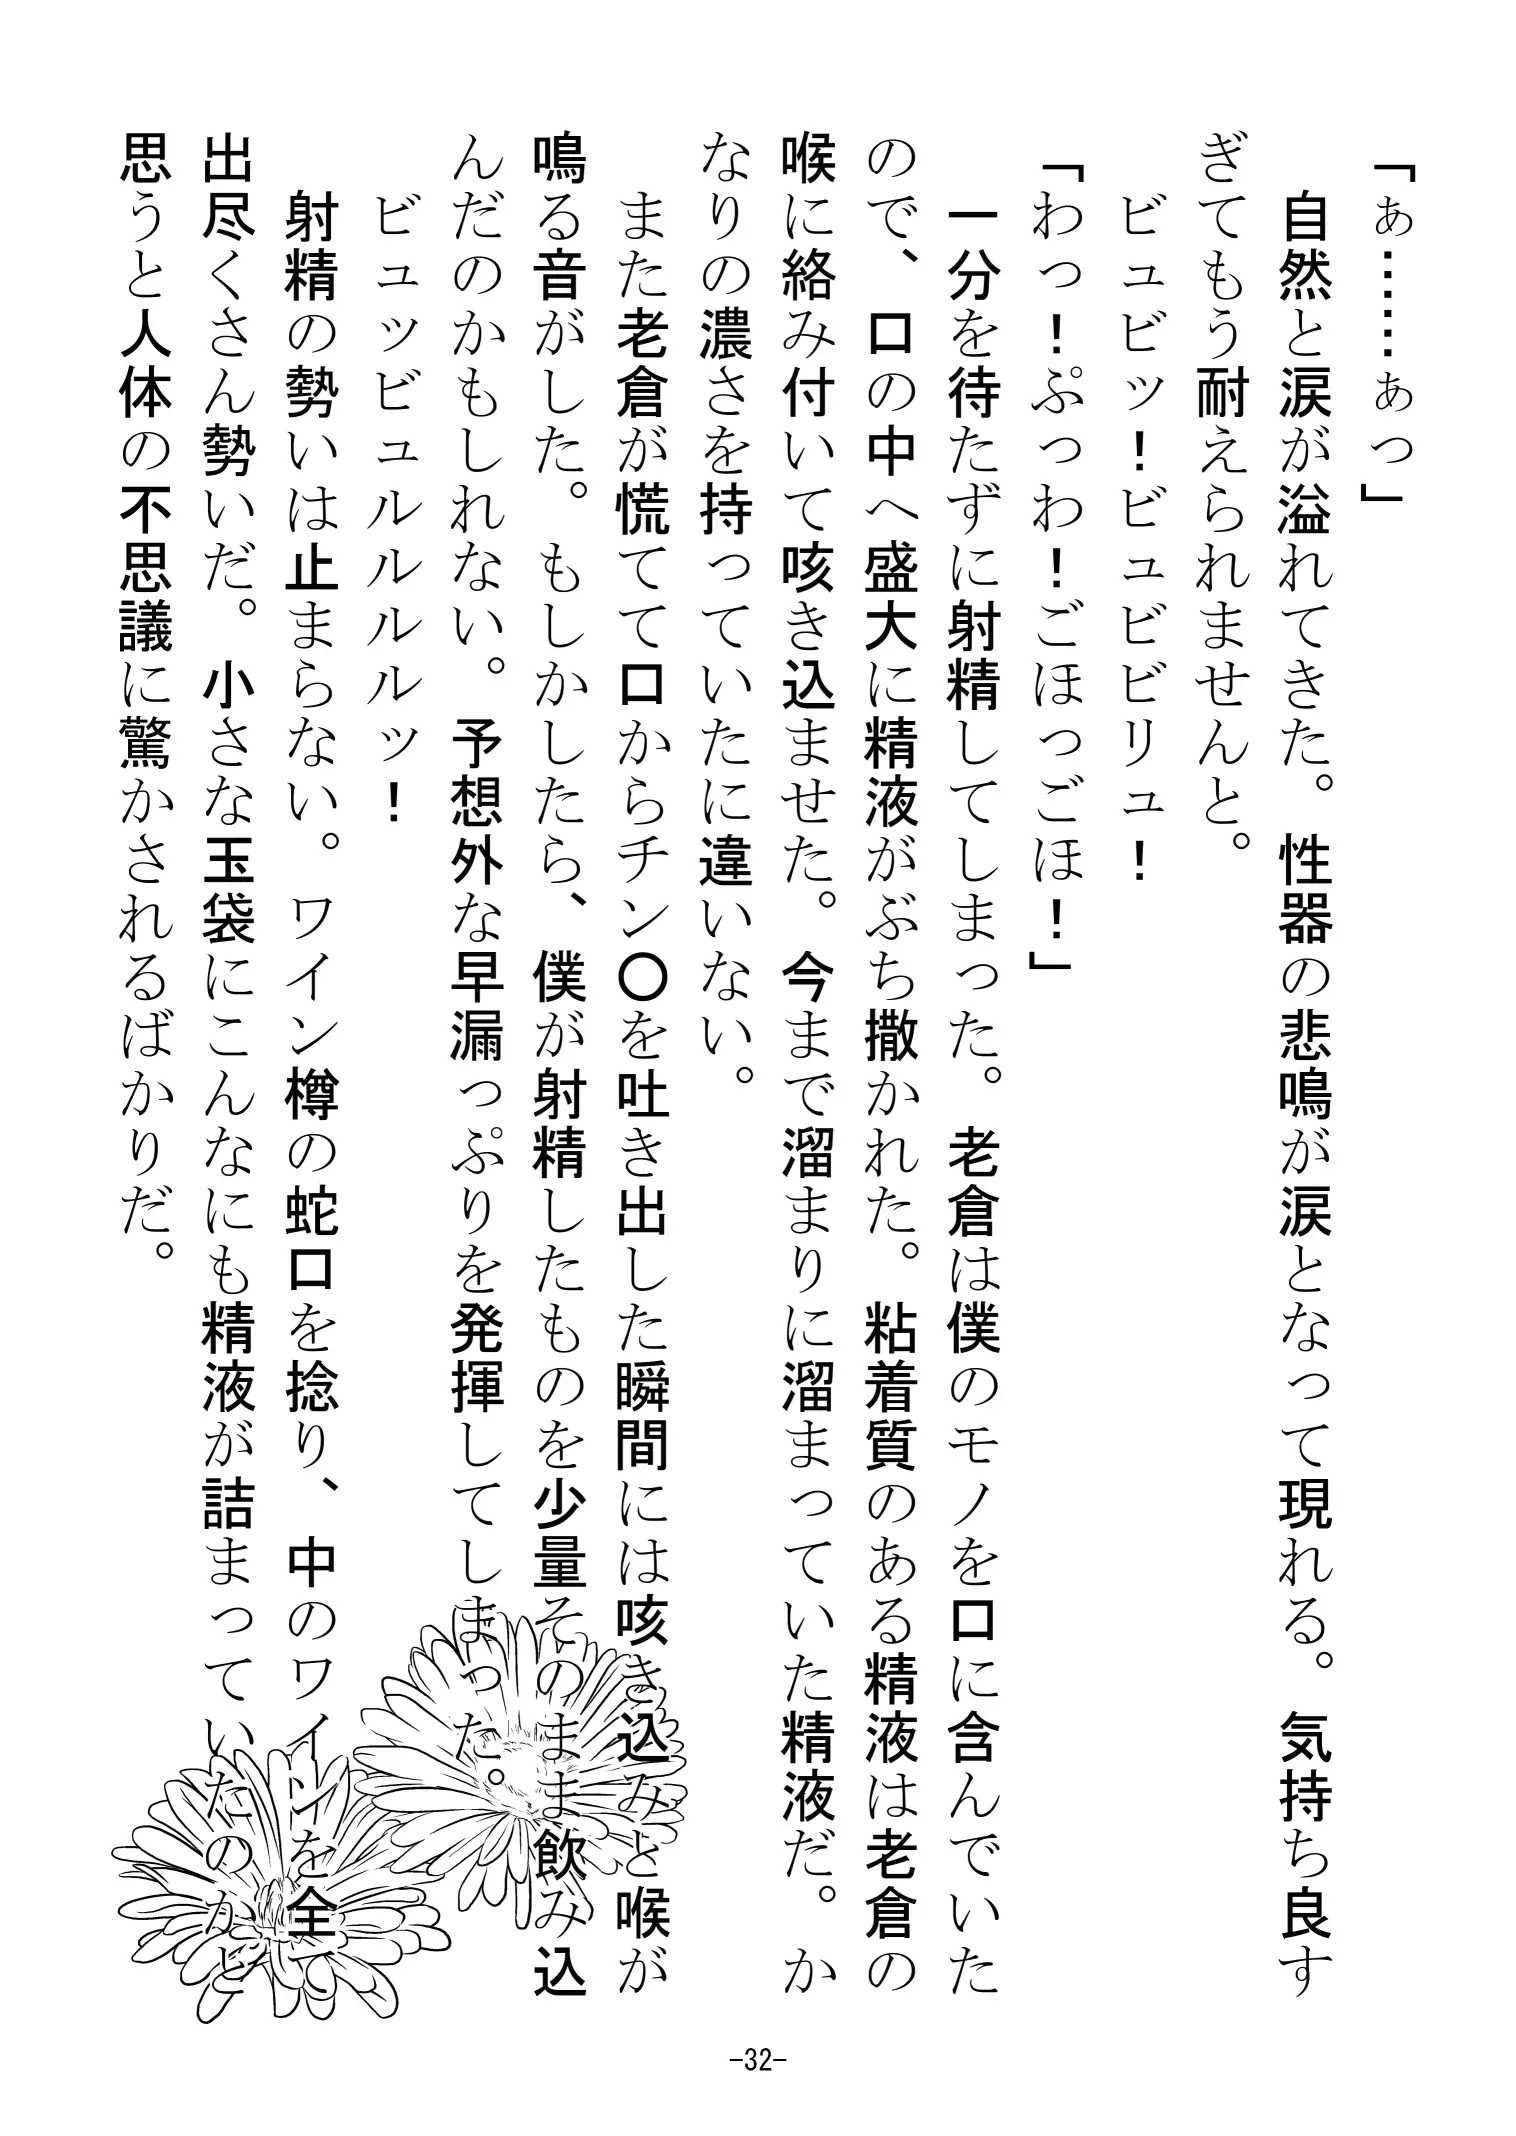 「ぁ……ぁっ」
自然と涙が溢れてきた。性器の悲鳴が涙となって現れる。気持ち良す
ぎてもう耐えられませんと。
ビュビッ！ビュビビリュ！
「わっ！ぷっわ！ごほっごほ！」
一分を待たずに射精してしまった。老倉は僕のモノを口に含んでいた
ので、口の中へ盛大に精液がぶち撒かれた。粘着質のある精液は老倉の
喉に絡み付いて咳き込ませた。今まで溜まりに溜まっていた精液だ。か
なりの濃さを持っていたに違いない。
また老倉が慌てて口からチン〇を吐き出した瞬間には咳き込みと喉が
鳴る音がした。もしかしたら、僕が射精したものを少量そのまま飲み込
んだのかもしれない。予想外な早漏っぷりを発揮してしまった。
ビュッビュルルルルッ！
射精の勢いは止まらない。ワイン樽の蛇口を捻り、中のワインを全て
出尽くさん勢いだ。小さな玉袋にこんなにも精液が詰まっていたのかと
思うと人体の不思議に驚かされるばかりだ。
-32-